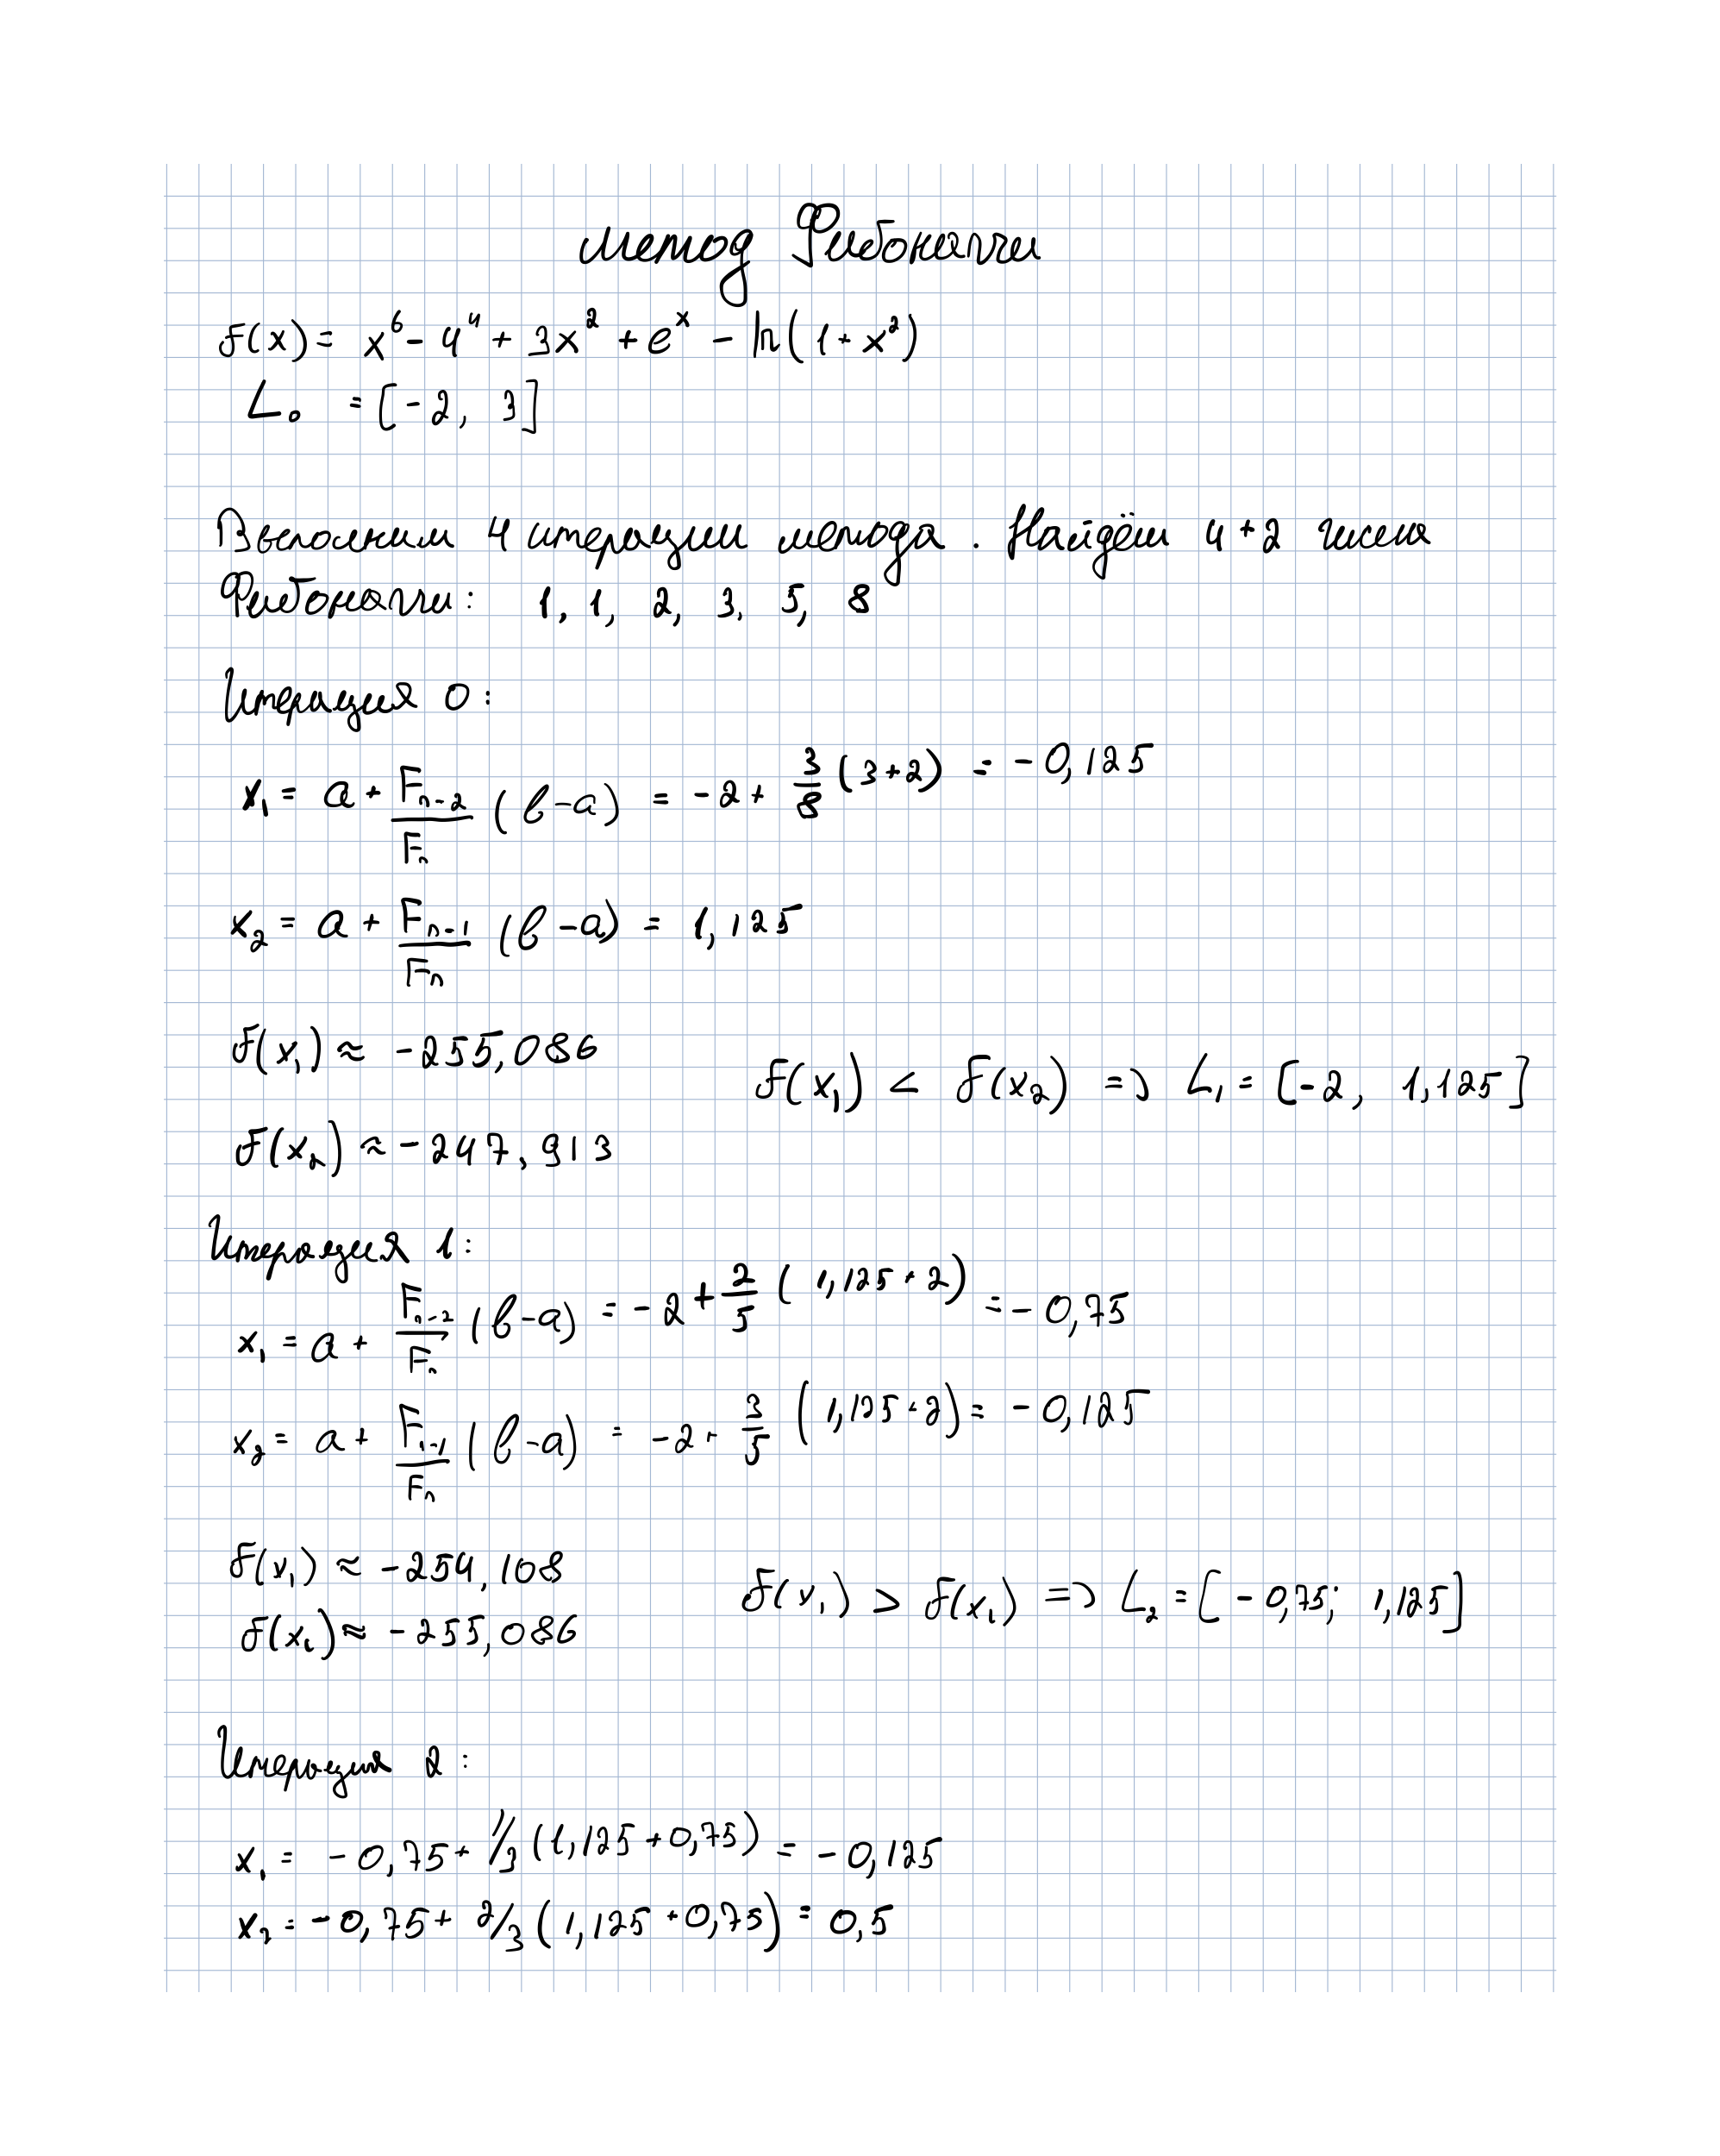 метод Фибоначчи
f(x) = x⁶ - 4⁴ + 3x² + eˣ - ln(1 + x²)
L₀ = [-2, 3]
Выполним 4 итерации метода. Найдём 4+2 числа
Фибоначчи: 1, 1, 2, 3, 5, 8
Итерация 0:
x₁ = a + Fₙ₋₂/Fₙ (b-a) = -2 + 3/8 (3+2) = -0,125
x₂ = a + Fₙ₋₁/Fₙ (b-a) = 1,125
f(x₁) ≈ -255,086
f(x₁) < f(x₂) => L₁ = [-2, 1,125]
f(x₂) ≈ -247,913
Итерация 1:
x₁ = a + Fₙ₋₂/Fₙ (b-a) = -2 + 2/5 (1,125 + 2) = -0,75
x₂ = a + Fₙ₋₁/Fₙ (b-a) = -2 + 3/5 (1,125 + 2) = -0,125
f(x₁) ≈ -254,108
f(x₁) > f(x₂) => L₂ = [-0,75; 1,125]
f(x₂) ≈ -255,086
Итерация 2:
x₁ = -0,75 + 1/3 (1,125 + 0,75) = -0,125
x₂ = -0,75 + 2/3 (1,125 + 0,75) = 0,5